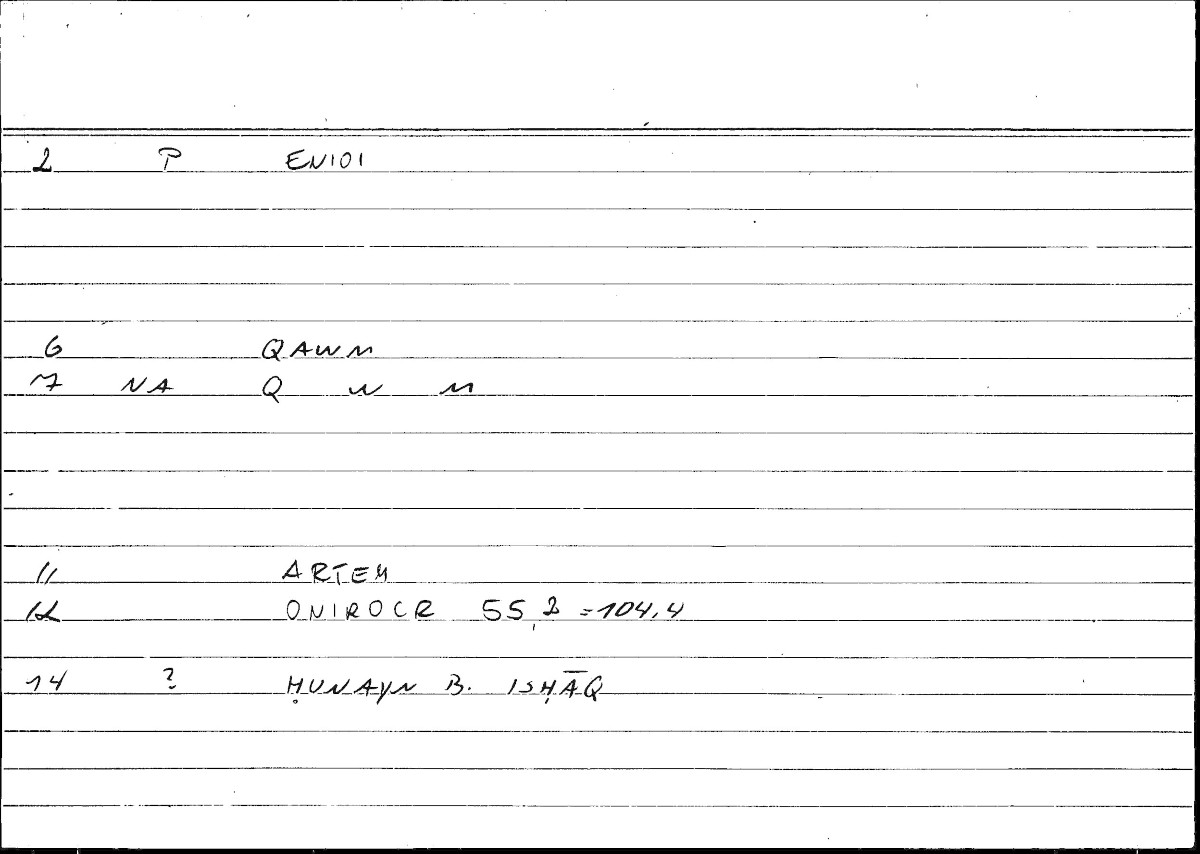 2 P ENIOI
6 QAWM
7 NA Q W M
11 ARTEM
12 ONIROCR 55,2 = 104,4
14 ? ḤUNAYN B. ISḤĀQ